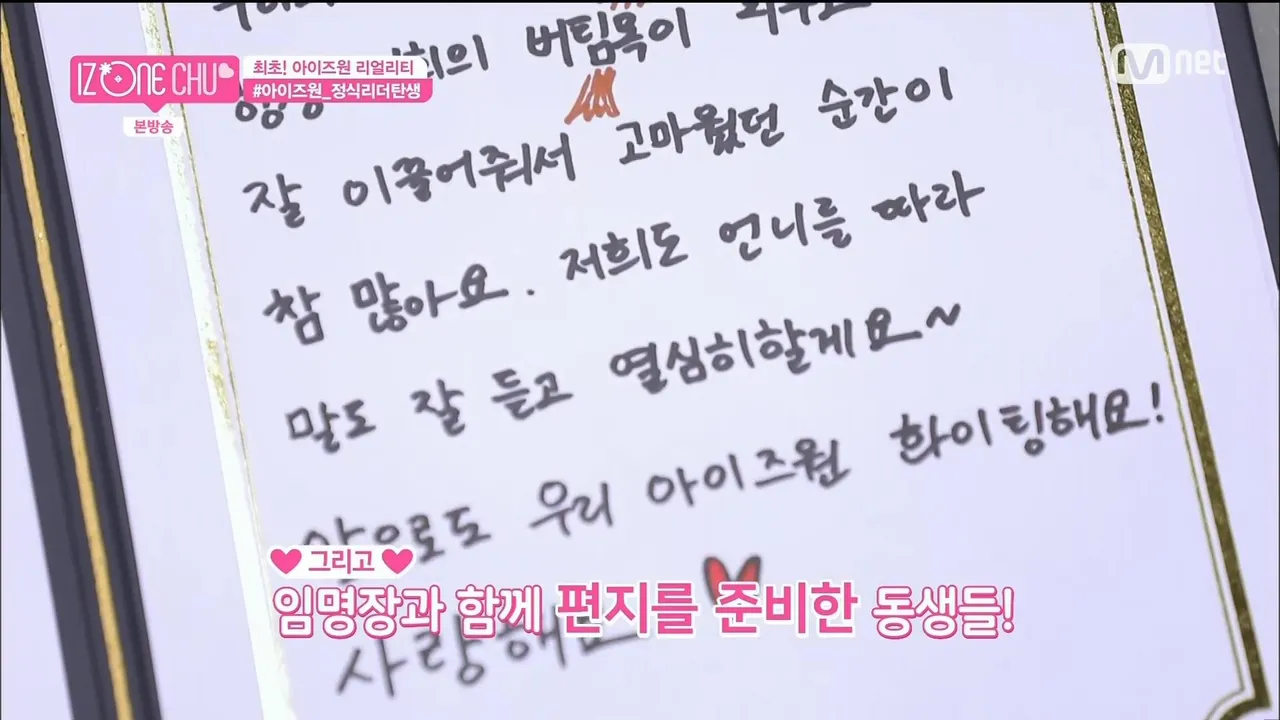 IZ*ONE CHU
최초! 아이즈원 리얼리티
#아이즈원_정식리더탄생
본방송
M net
버팀목이
잘 이끌어줘서 고마웠던 순간이
참 많아요. 저희도 언니를 따라
말도 잘 듣고 열심히할게요~
앞으로도 우리 아이즈원 화이팅해요!
사랑해요
그리고
임명장과 함께 편지를 준비한 동생들!